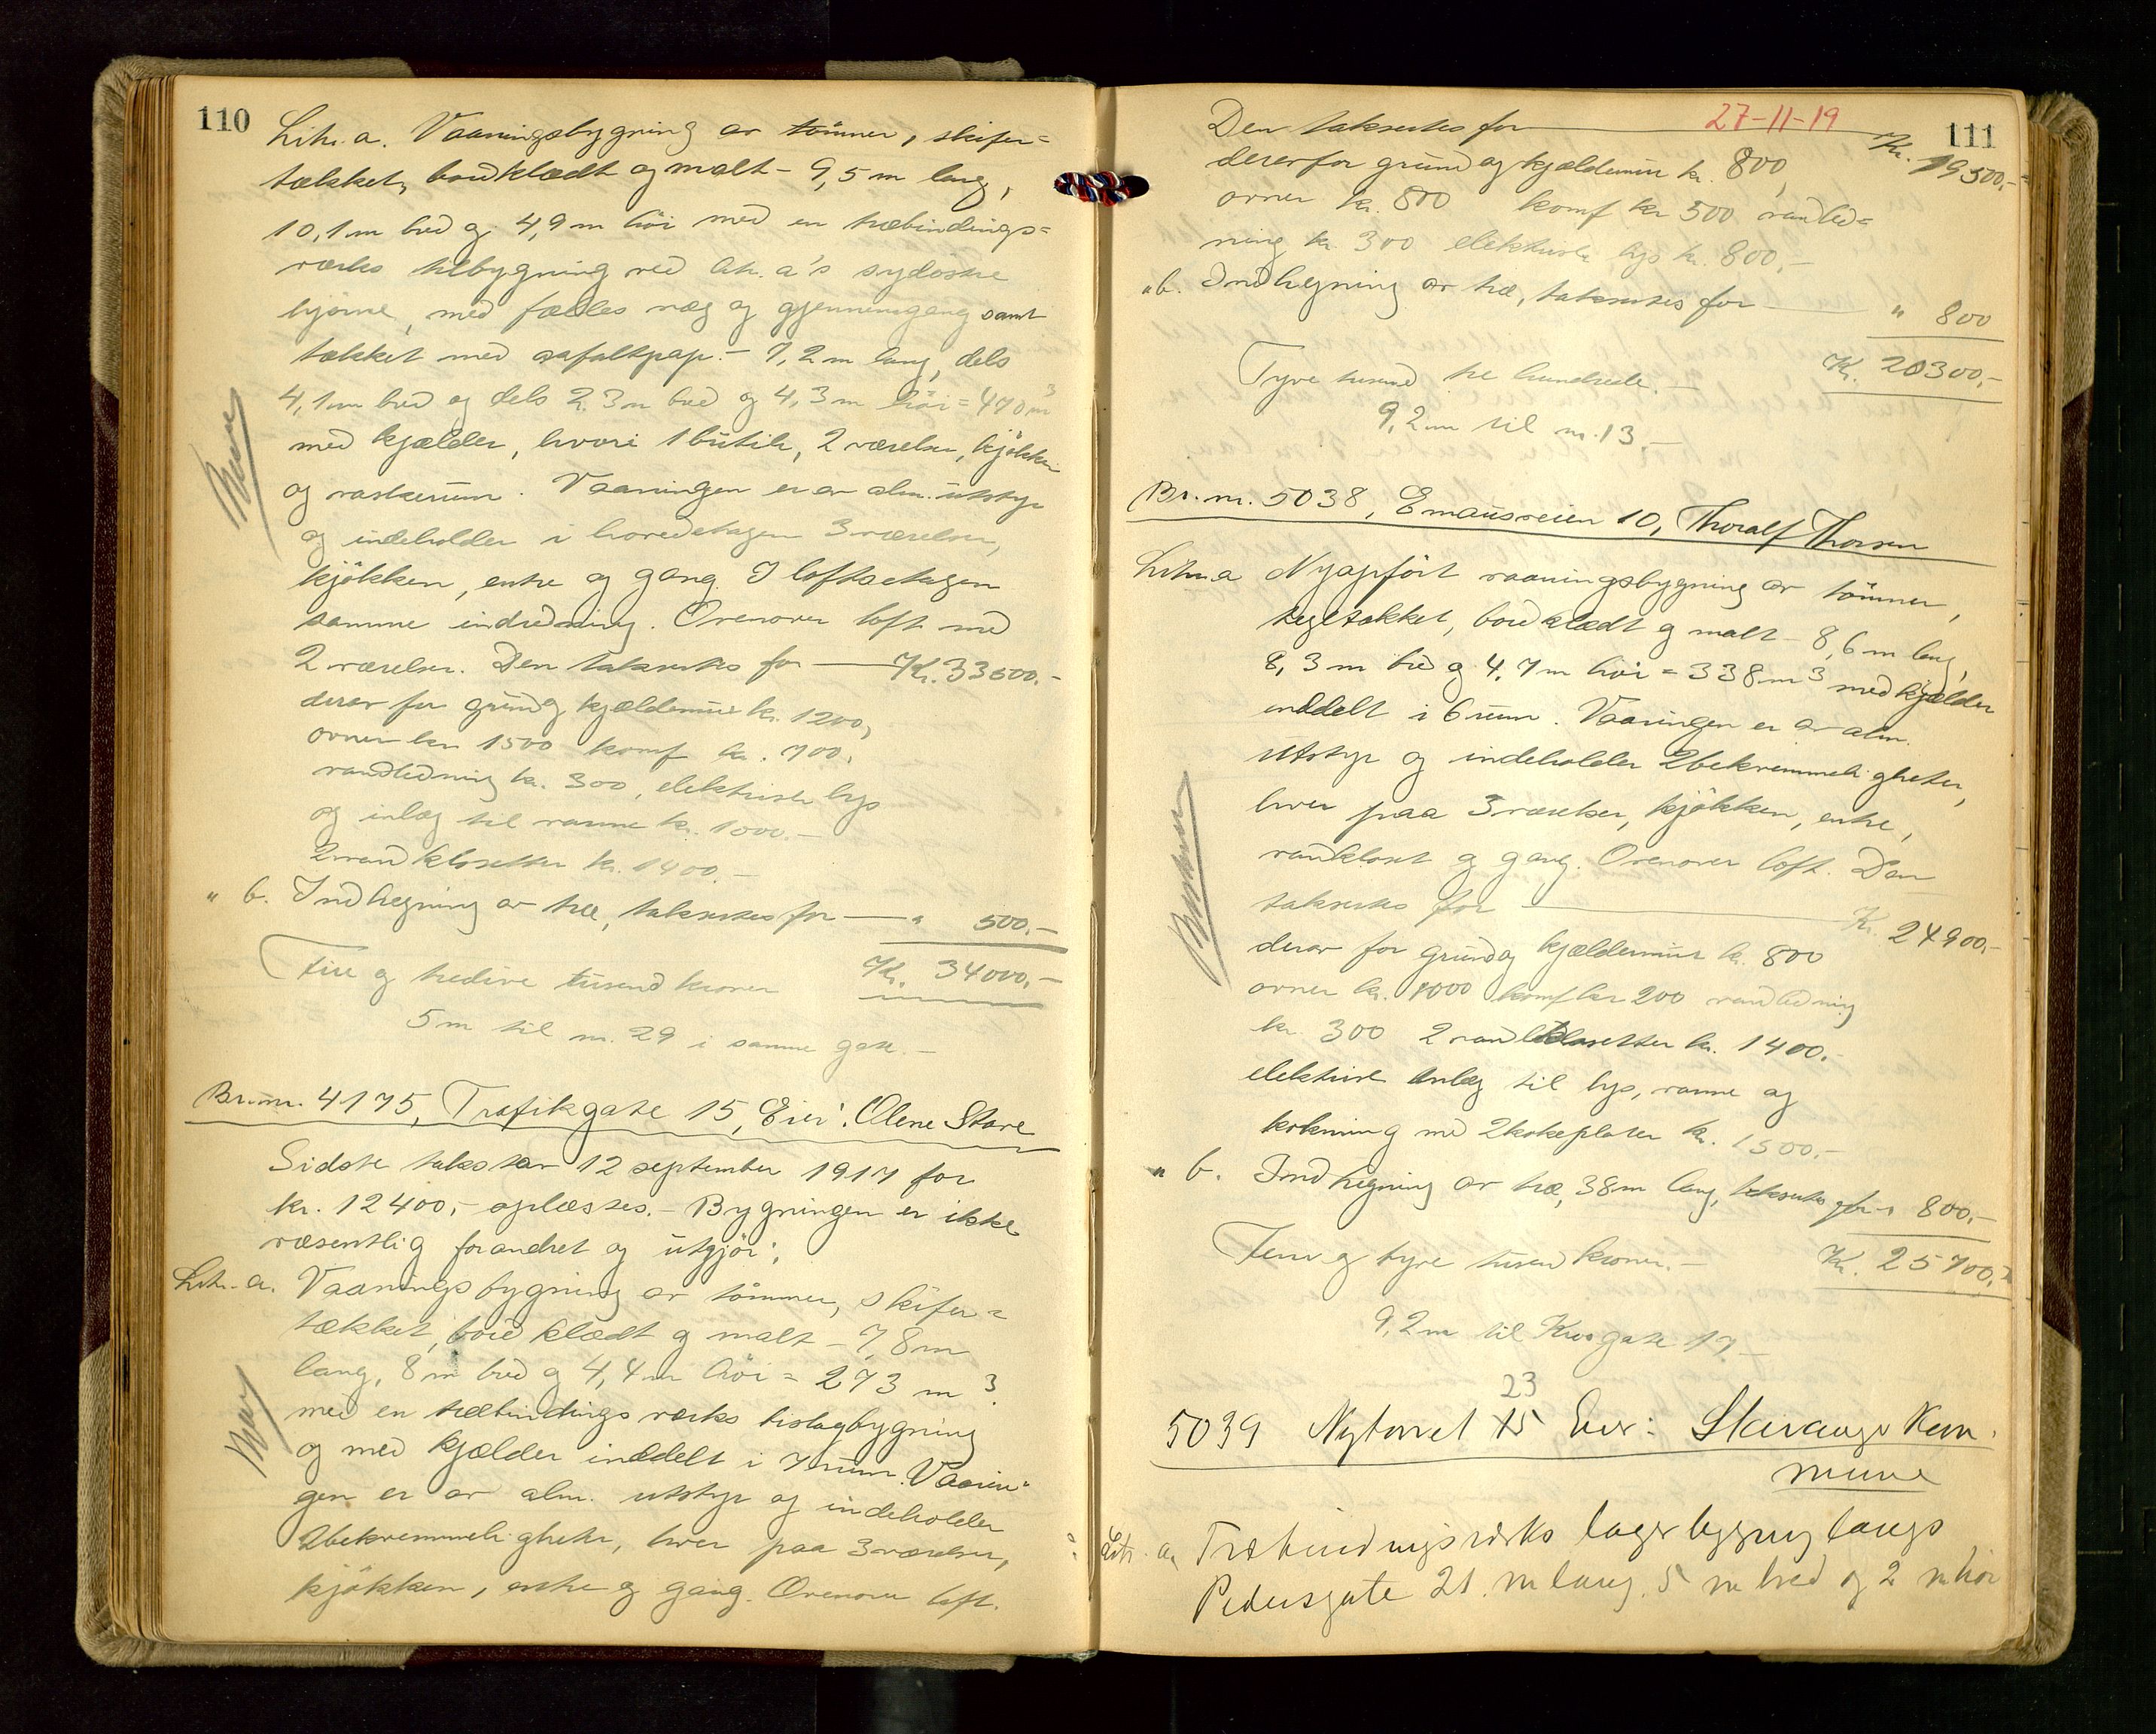 110
Litr. a. Vaaningsbygning av tömmer, skifer=
tækket, bordklædt og malt - 9,5 m lang,
10,1 m bred og 4,9 m höi med en træbindings=
værks tilbygning ved litr. a's sydöstre
hjörne, med fælles væg og gjennemgang samt
tækket med asfaltpap. - 7,2 m lang, dels
4,1 m bred og dels 2,3 m bred og 4,3 m höi = 470 m³
med kjælder, hvori 1 butik, 2 værelser, kjökken
og vaskerum. Vaaningen er av alm. utstyr
og indeholder i hovedetagen 3 værelser,
kjökken, entre og gang. I loftsetagen
samme indredning. Ovenover loft med
2 værelser. Den taksertes for — Kr. 33500.-
derav for grund og kjældermur kr. 1200,
ovner kr 1500 komf kr. 700,
vandledning kr. 300, elektrisk lys
og inlæg til varme kr. 1000.-
2 vandklosetter kr. 1400.-
" b. Indhegning av træ, taksertes for — " 500.-
Fire og tredive tusend kroner Kr. 34000.-
5 m til nr. 29 i samme gate.-
Br. nr. 4175, Trafikgate 15, Eier: Olene Stave
Sidste takst av 12 september 1917 for
kr. 12400,- oplæstes.- Bygningen er ikke
væsentlig forandret og utgjör:
Litr. a. Vaaningsbygning av tömmer, skifer=
tækket, bordklædt og malt - 7,8 m
lang, 8 m bred og 4,4 m höi = 273 m³
med en træbindingsværks bislagbygning
og med kjælder inddelt i 7 rum. Vaanin=
gen er av alm. utstyr og indeholder
2 bekvemmeligheter, hver paa 3 værelser,
kjökken, entre og gang. Ovenover loft.
111
27-11-19
Den taksertes for — Kr. 19500.-
derav for grund og kjældermur kr. 800,
ovner kr. 800 komf kr 500 vandled=
ning kr. 300 elektrisk lys kr. 800,-
" b. Indhegning av træ, taksertes for — " 800
Tyve tusend tre hundrede.- Kr. 20300,-
9,2 m til nr. 13.-
Br. nr. 5038, Emausveien 10, Thoralf Thorsen
Litr. a Nyopfört vaaningsbygning av tömmer,
tegltækket, bordklædt og malt - 8,6 m lang,
8,3 m bred og 4,7 m höi = 338 m³ med kjælder
inddelt i 6 rum. Vaaningen er av alm.
utstyr og indeholder 2 bekvemmeligheter,
hver paa 3 værelser, kjökken, entre,
vandkloset og gang. Ovenover loft. Den
taksertes for — Kr. 24900,-
derav for grund og kjældermur kr. 800
ovner kr. 1000 komf kr 200 vandledning
kr. 300 2 vandklosetter kr. 1400.-
elektrisk anlæg til lys, varme og
kokning med 2 kokeplater kr. 1500.-
" b. Indhegning av træ, 38 m lang, taksertes for " 800.-
Fem og tyve tusen kroner.- Kr. 25700,-
9,2 m til Krosgate 17-
23
5039 Nytorvet 15 Eier: Stavanger Kom.
mune
Litr. a, Træbindingsværks lagerbygning langs
Pedersgate 21. m lang, 5 m bred og 2 m höi